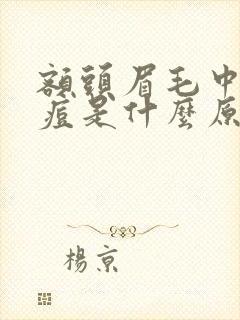 額頭眉毛中
痘是什麼原
楊京